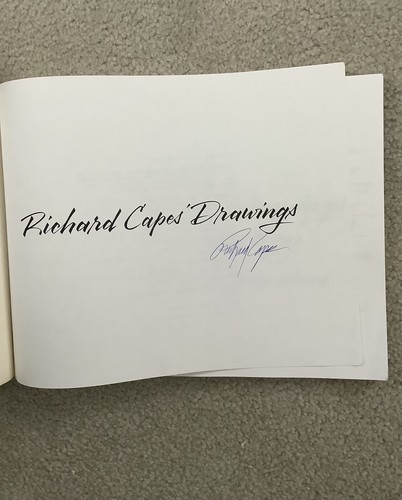 Richard Capes' Drawings
Richard Capes